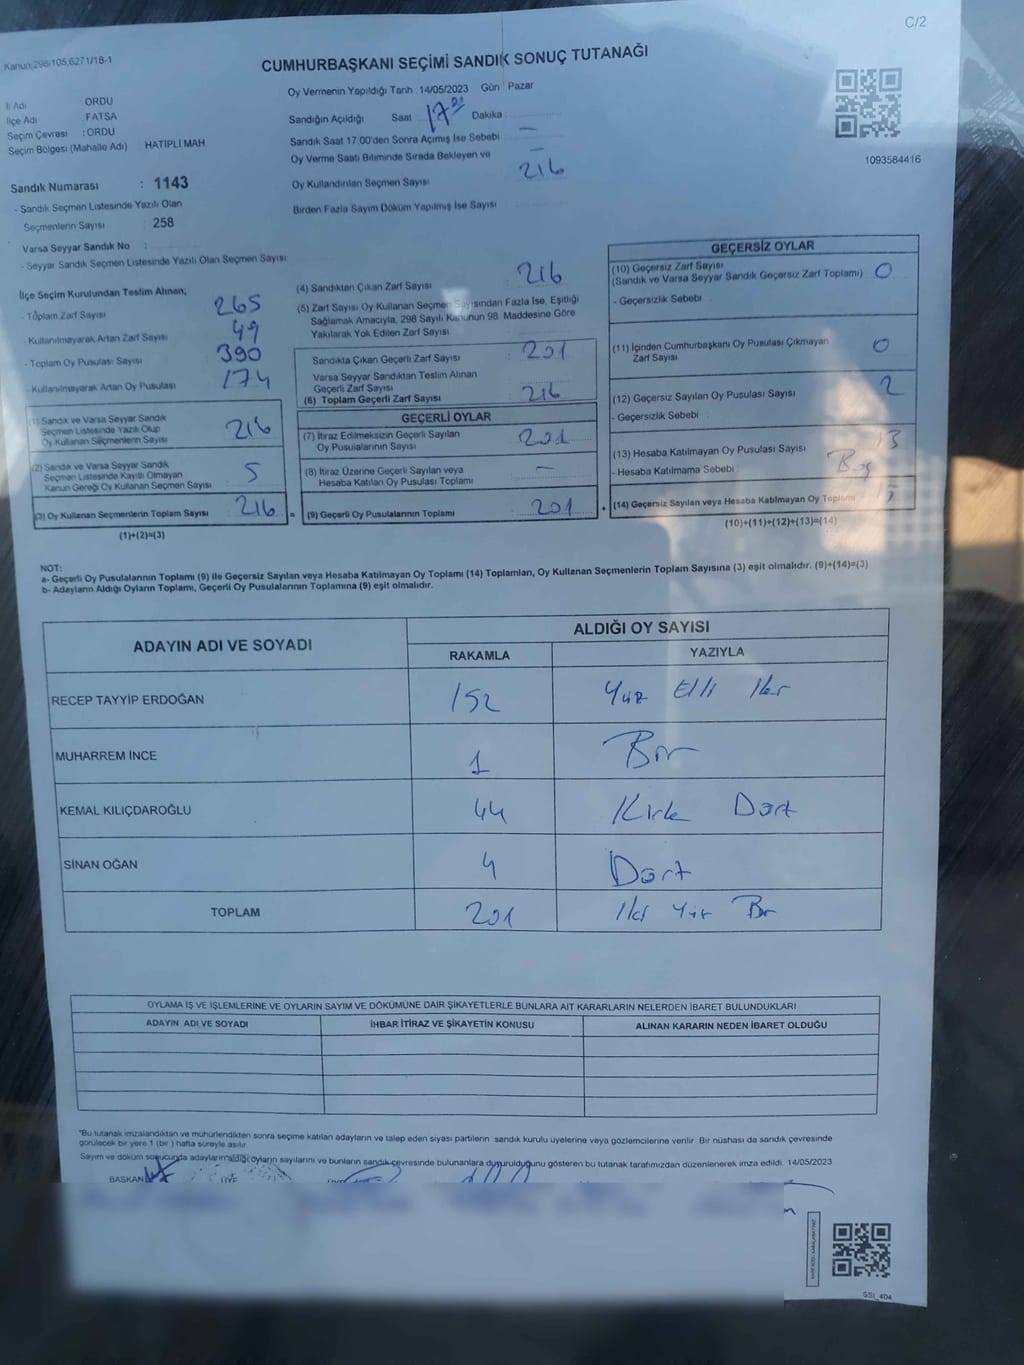 C/2
Kanun;298/105,6271/18-1
CUMHURBAŞKANI SEÇİMİ SANDIK SONUÇ TUTANAĞI
İl Adı : ORDU
İlçe Adı : FATSA
Seçim Çevresi : ORDU
Seçim Bölgesi (Mahalle Adı) HATİPLİ MAH.
Oy Vermenin Yapıldığı Tarih : 14/05/2023 Gün : Pazar
Sandığın Açıldığı Saat : 17 00 Dakika :
Sandık Saat 17:00'den Sonra Açımış İse Sebebi : —
Oy Verme Saati Bitiminde Sırada Bekleyen ve —
Oy Kullandırılan Seçmen Sayısı 216
Birden Fazla Sayım Döküm Yapılmış İse Sayısı :
1093584416
Sandık Numarası : 1143
- Sandık Seçmen Listesinde Yazılı Olan
Seçmenlerin Sayısı : 258
Varsa Seyyar Sandık No :
- Seyyar Sandık Seçmen Listesinde Yazılı Olan Seçmen Sayısı
İlçe Seçim Kurulundan Teslim Alınan;
- Toplam Zarf Sayısı 265
- Kullanılmayarak Artan Zarf Sayısı 49
- Toplam Oy Pusulası Sayısı 390
- Kullanılmayarak Artan Oy Pusulası 174
(1) Sandık ve Varsa Seyyar Sandık
Seçmen Listesinde Yazılı Olup
Oy Kullanan Seçmenlerin Sayısı 216
(2) Sandık ve Varsa Seyyar Sandık
Seçmen Listesinde Kayıtlı Olmayan
Kanun Gereği Oy Kullanan Seçmen Sayısı 5
(3) Oy Kullanan Seçmenlerin Toplam Sayısı 216
(1)+(2)=(3)
(4) Sandıktan Çıkan Zarf Sayısı : 216
(5) Zarf Sayısı Oy Kullanan Seçmen Sayısından Fazla İse, Eşitliği
Sağlamak Amacıyla, 298 Sayılı Kanunun 98. Maddesine Göre
Yakılarak Yok Edilen Zarf Sayısı :
Sandıkta Çıkan Geçerli Zarf Sayısı : 201
Varsa Seyyar Sandıktan Teslim Alınan
Geçerli Zarf Sayısı :
(6) Toplam Geçerli Zarf Sayısı : 216
GEÇERLİ OYLAR
(7) İtiraz Edilmeksizin Geçerli Sayılan
Oy Pusulalarının Sayısı : 201
(8) İtiraz Üzerine Geçerli Sayılan veya
Hesaba Katılan Oy Pusulası Toplamı : —
= (9) Geçerli Oy Pusulalarının Toplamı : 201 +
GEÇERSİZ OYLAR
(10) Geçersiz Zarf Sayısı
(Sandık ve Varsa Seyyar Sandık Geçersiz Zarf Toplamı) : 0
- Geçersizlik Sebebi :
(11) İçinden Cumhurbaşkanı Oy Pusulası Çıkmayan
Zarf Sayısı : 0
(12) Geçersiz Sayılan Oy Pusulası Sayısı : 2
- Geçersizlik Sebebi :
(13) Hesaba Katılmayan Oy Pusulası Sayısı : 13
- Hesaba Katılmama Sebebi : Boş
(14) Geçersiz Sayılan veya Hesaba Katılmayan Oy Toplamı
(10)+(11)+(12)+(13)=(14)
NOT:
a- Geçerli Oy Pusulalarının Toplamı (9) ile Geçersiz Sayılan veya Hesaba Katılmayan Oy Toplamı (14) Toplamları, Oy Kullanan Seçmenlerin Toplam Sayısına (3) eşit olmalıdır. (9)+(14)=(3)
b- Adayların Aldığı Oyların Toplamı, Geçerli Oy Pusulalarının Toplamına (9) eşit olmalıdır.
ADAYIN ADI VE SOYADI ALDIĞI OY SAYISI
RAKAMLA YAZIYLA
RECEP TAYYİP ERDOĞAN 152 Yüz Elli İki
MUHARREM İNCE 1 Bir
KEMAL KILIÇDAROĞLU 44 Kırk Dört
SİNAN OĞAN 4 Dört
TOPLAM 201 İki Yüz Bir
OYLAMA İŞ VE İŞLEMLERİNE VE OYLARIN SAYIM VE DÖKÜMÜNE DAİR ŞİKAYETLERLE BUNLARA AİT KARARLARIN NELERDEN İBARET BULUNDUKLARI
ADAYIN ADI VE SOYADI İHBAR İTİRAZ VE ŞİKAYETİN KONUSU ALINAN KARARIN NEDEN İBARET OLDUĞU
*Bu tutanak imzalandıktan ve mühürlendikten sonra seçime katılan adayların ve talep eden siyasi partilerin sandık kurulu üyelerine veya gözlemcilerine verilir. Bir nüshası da sandık çevresinde
görülecek bir yere 1 (bir) hafta süreyle asılır.
Sayım ve döküm sonucunda adayların aldığı oyların sayılarını ve bunların sandık çevresinde bulunanlara duyurulduğunu gösteren bu tutanak tarafımızdan düzenlenerek imza edildi. 14/05/2023
BAŞKAN ÜYE
SSI_404